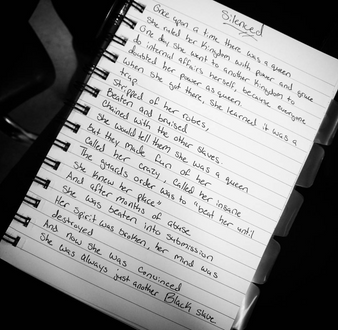 Silenced
Once upon a time there was a queen
She ruled her Kingdom with power and grace
One day She went to another Kingdom to
do internal affairs herself, because everyone
doubted her power as queen.
When she got there, She learned it was a
trap.
Stripped of her robes,
Beaten and bruised
Chained with the other slaves.
She would tell them she was a queen
But they made fun of her
Called her crazy, called her insane
The guards order was to "beat her until
She knew her place"
And after months of abuse
She was beaten into submission
Her Spirit was broken, her mind was
destroyed
And now she was convinced
She was always just another Black slave